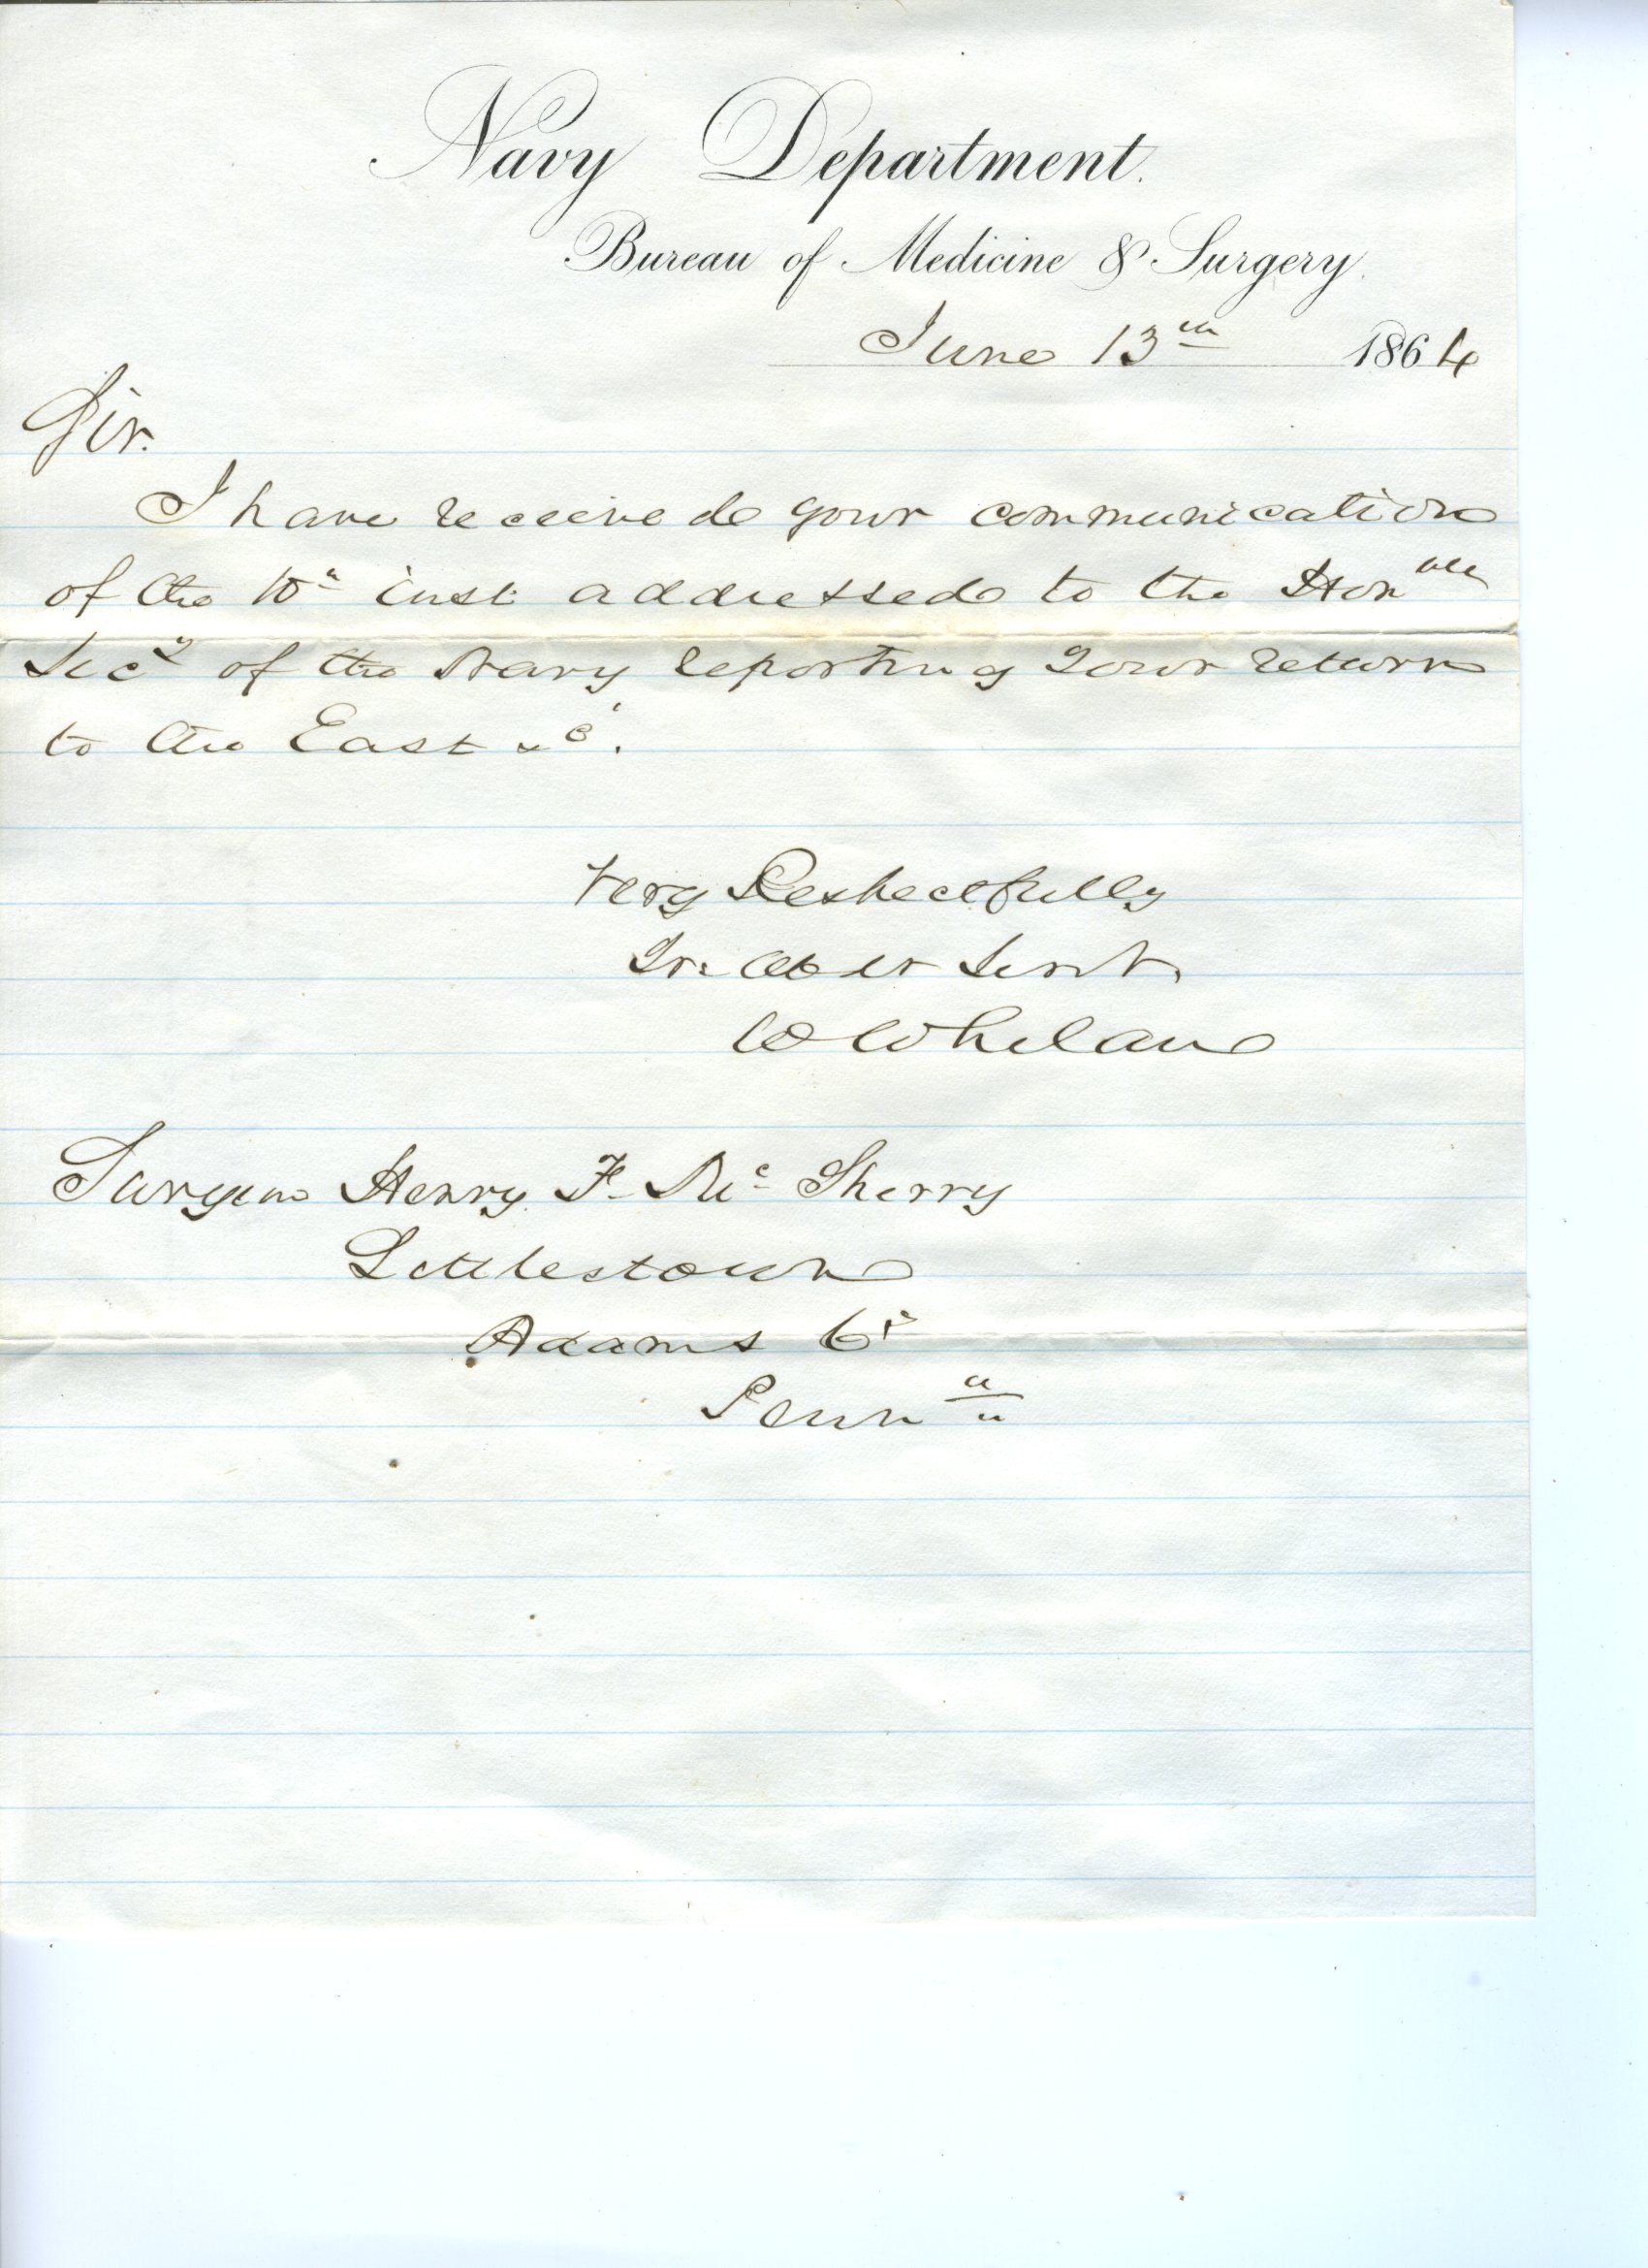 Navy Department.
Bureau of Medicine & Surgery.
June 13th 1864
Sir.
I have received your communication
of the 10th inst: addressed to the Honble
Secy of the Navy reporting your return
to the East &c.
Very Respectfully
Yr: Obt Servt.
W Whelan
Surgeon Henry F. Mc Sherry
Littlestown
Adams Co
Penna